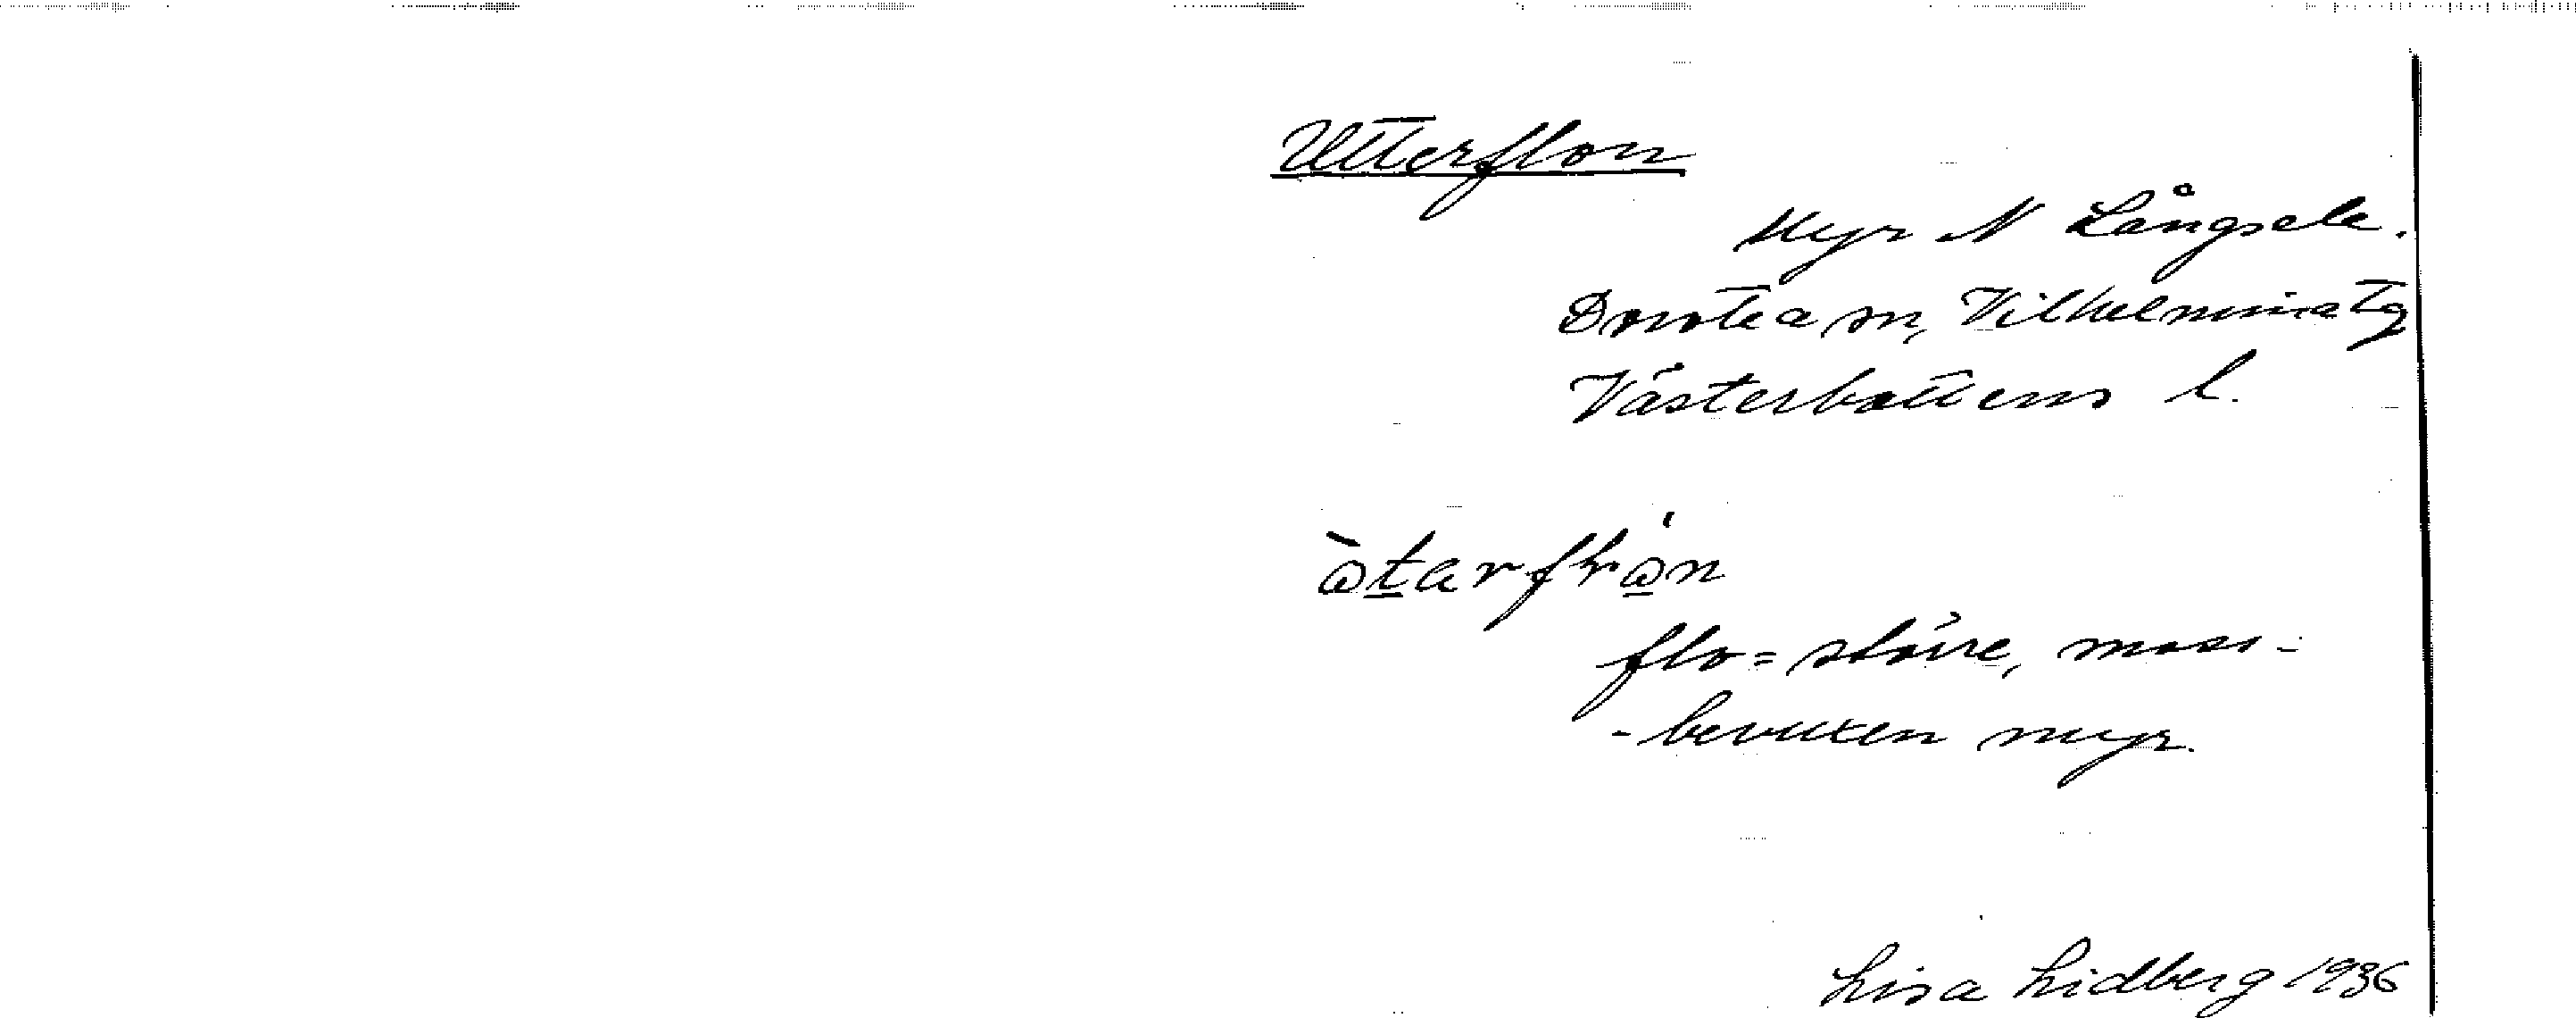 Utterflon
Myr N Långsele.
Dorotea sn, Vilhelmina tg
Västerbottens l.
flo = större, moss-
-bevuxen myr.
Lisa Lidberg 1936